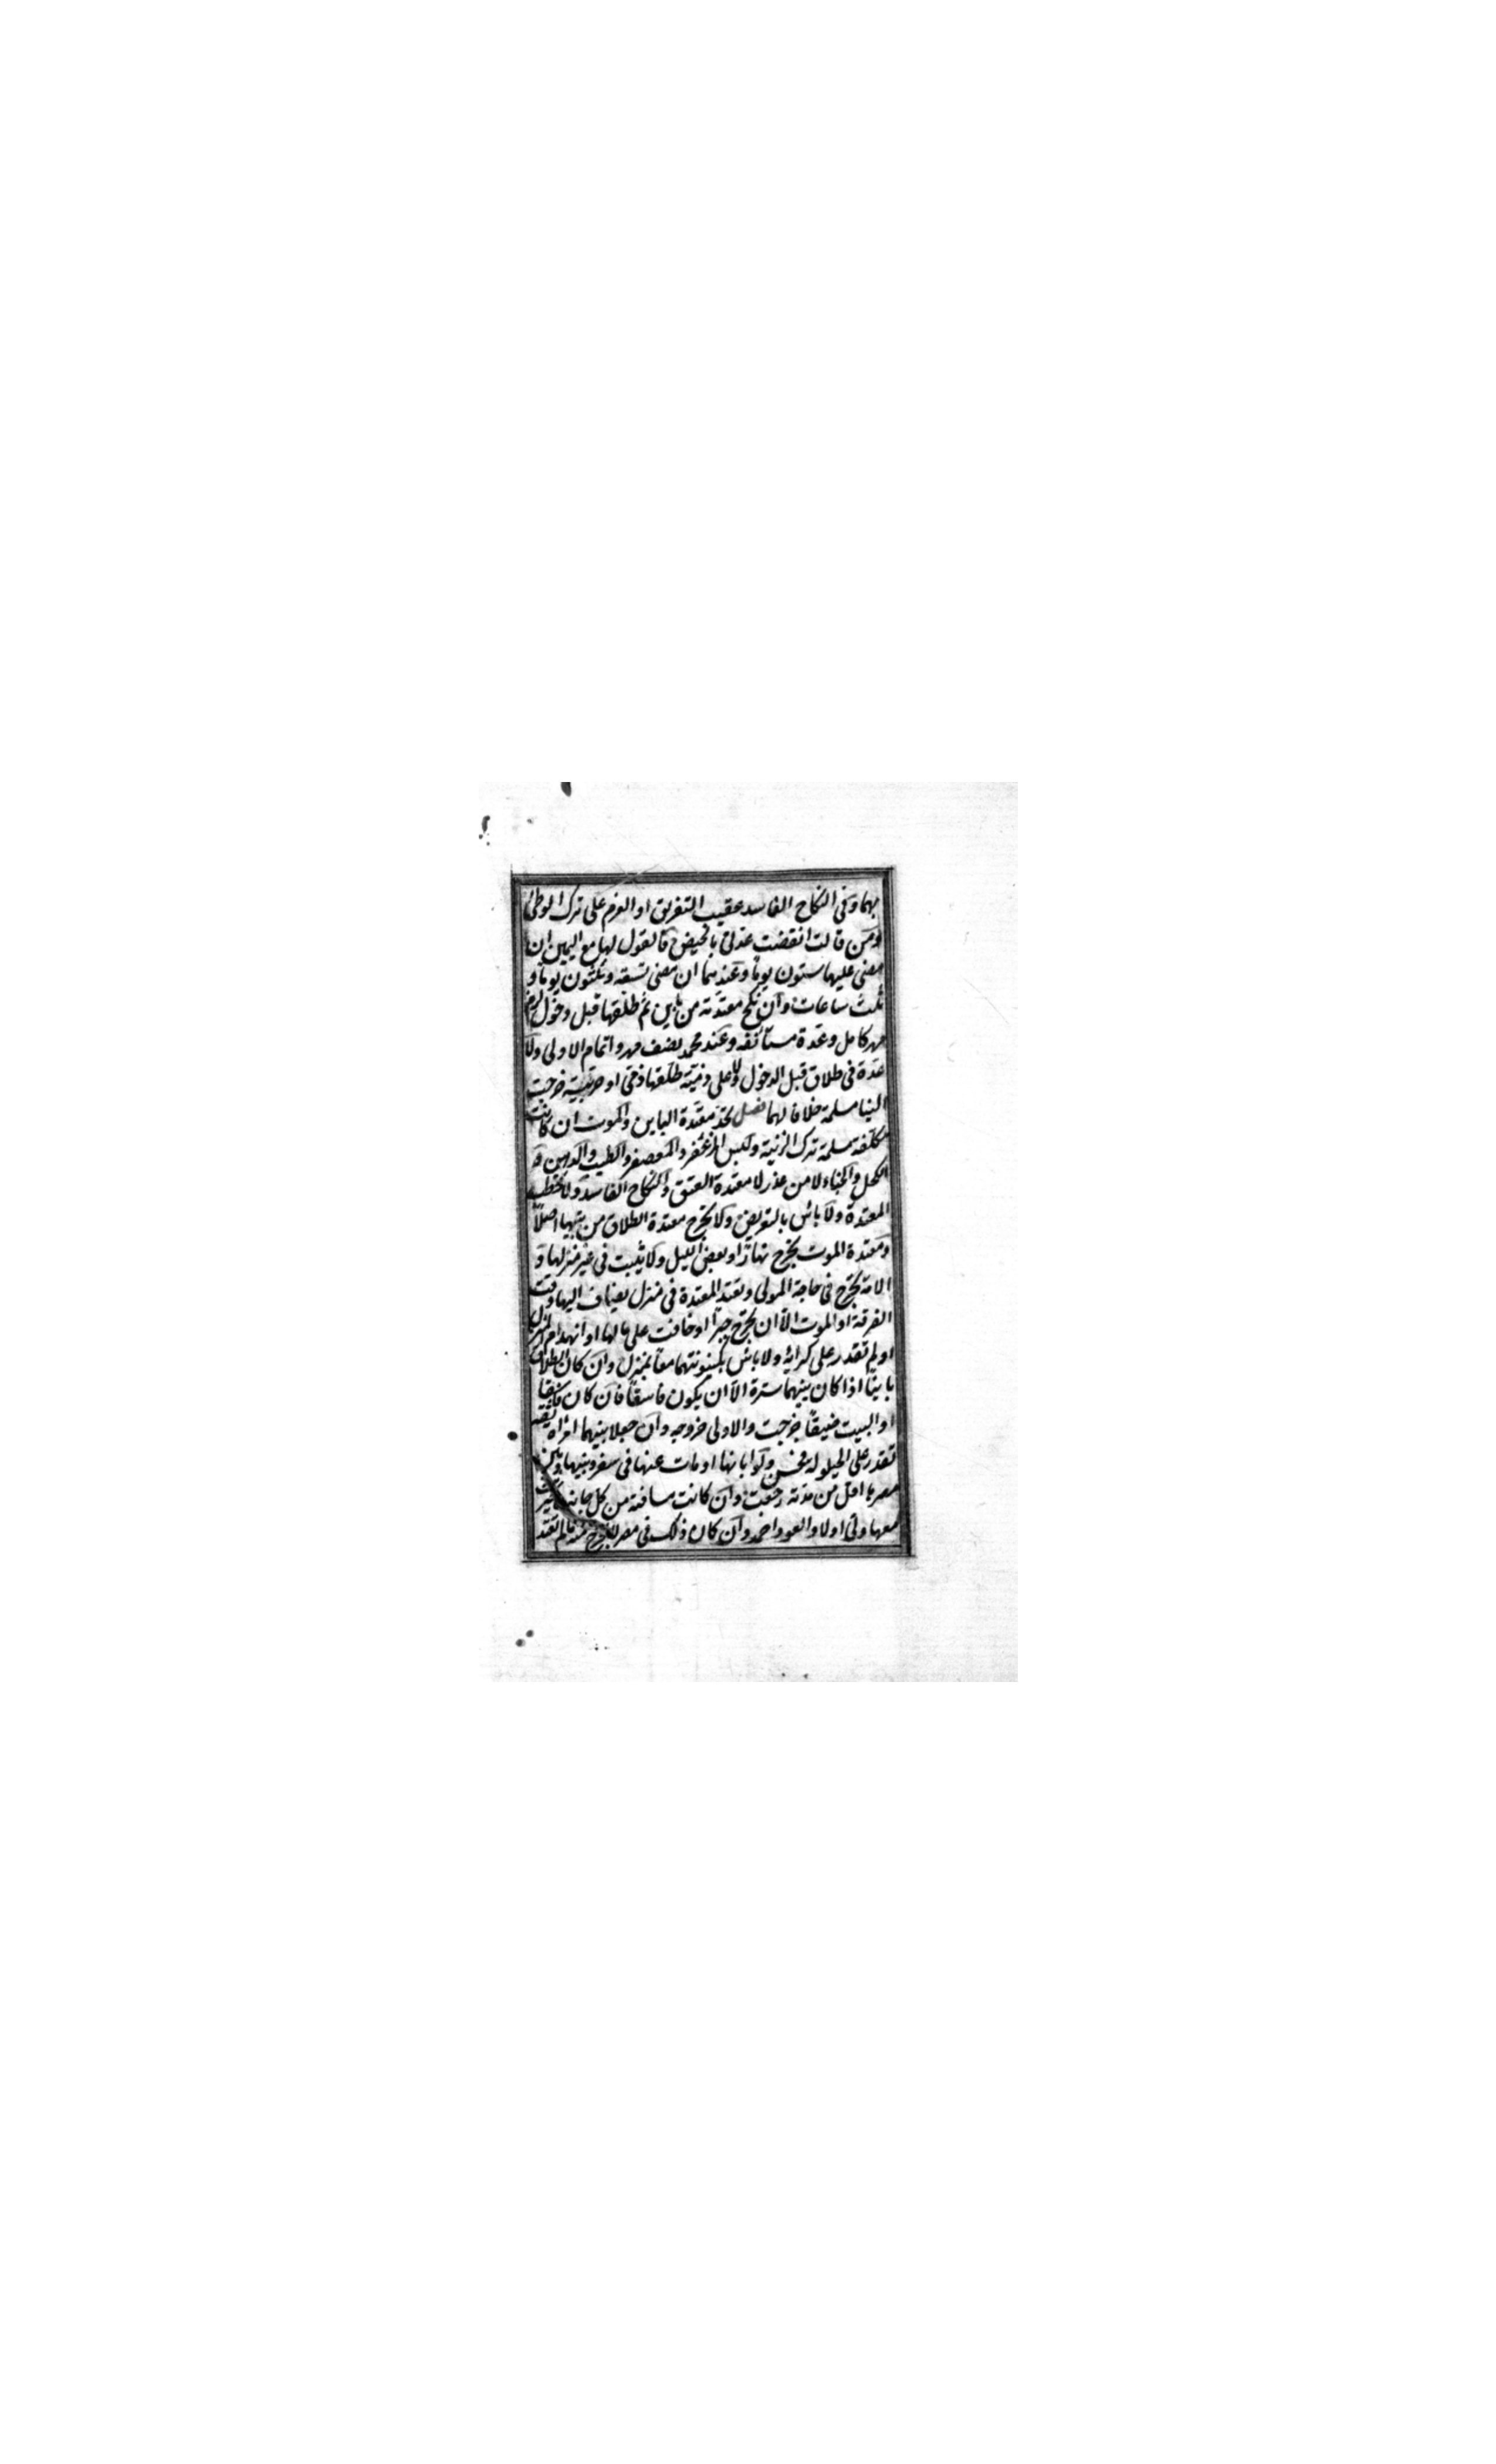 بهما وفى النكاح الفاسد عقيب التفريق او العزم على ترك الوطئ
ومن قالت انقضت عدتى بالحيض فالقول لها مع اليمين ان
مضى عليها ستون يوما وعندهما ان مضى تسعة وثلثون يوما و
ثلث ساعات وان نكح معتدته من باين ثم طلقها قبل دخول لزم
مهر كامل وعدة مستأنفة وعند محمد نصف مهر واتمام الاولى ولا
عدة فى طلاق قبل الدخول ولا على ذمية طلقها ذمى او حربية خرجت
الينا مسلمة خلافا لهما فصل تحد معتدة الباين والموت ان كانت
مكلفة مسلمة بترك الزينة ولبس المزعفر والمعصفر والطيب والدهن و
الكحل والحناء الا من عذر لا معتدة العتق والنكاح الفاسد ولا تخطب
المعتدة ولا بأس بالتعريض ولا تخرج معتدة الطلاق من بيتها اصلا
ومعتدة الموت تخرج نهارا وبعض الليل ولا تبيت فى غير منزلها و
الامة تخرج فى حاجة المولى وتعتد المعتدة فى منزل يضاف اليها وقت
الفرقة او الموت الا ان تخرج جبرا او خافت على مالها او انهدام المنزل
او لم تقدر على كرائه ولا بأس بكينونتهما معا بمنزل وان كان الطلاق
باينا اذا كان بينهما سترة الا ان يكون فاسقا فان كان فاسقا
او البيت ضيقا خرجت والاولى خروجه وان جعلا بينهما امرأة ثقة
تقدر على الحيلولة فحسن ولو ابانها او مات عنها فى سفر وبينها وبين
مصرها اقل من مدته رجعت وان كانت مسافته من كل جانب خيرت
معها ولى اولا والعود احمد وان كان ذلك فى مصر لا تخرج منه ما لم تعتد